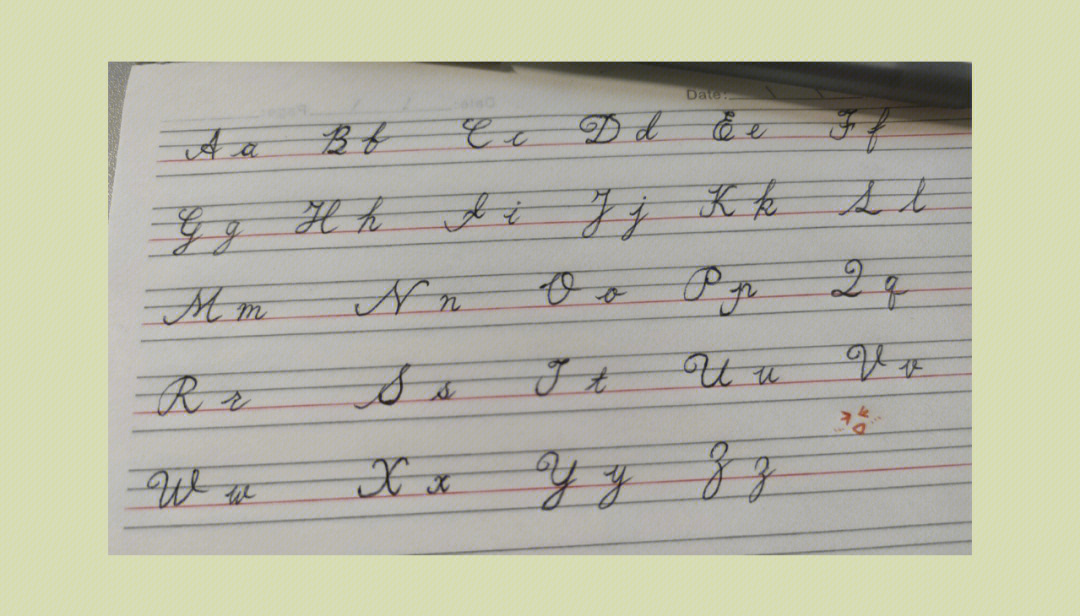 Date:
A a B b C c D d E e F f
G g H h I i J j K k L l
M m N n O o P p Q q
R r S s T t U u V v
W w X x Y y Z z